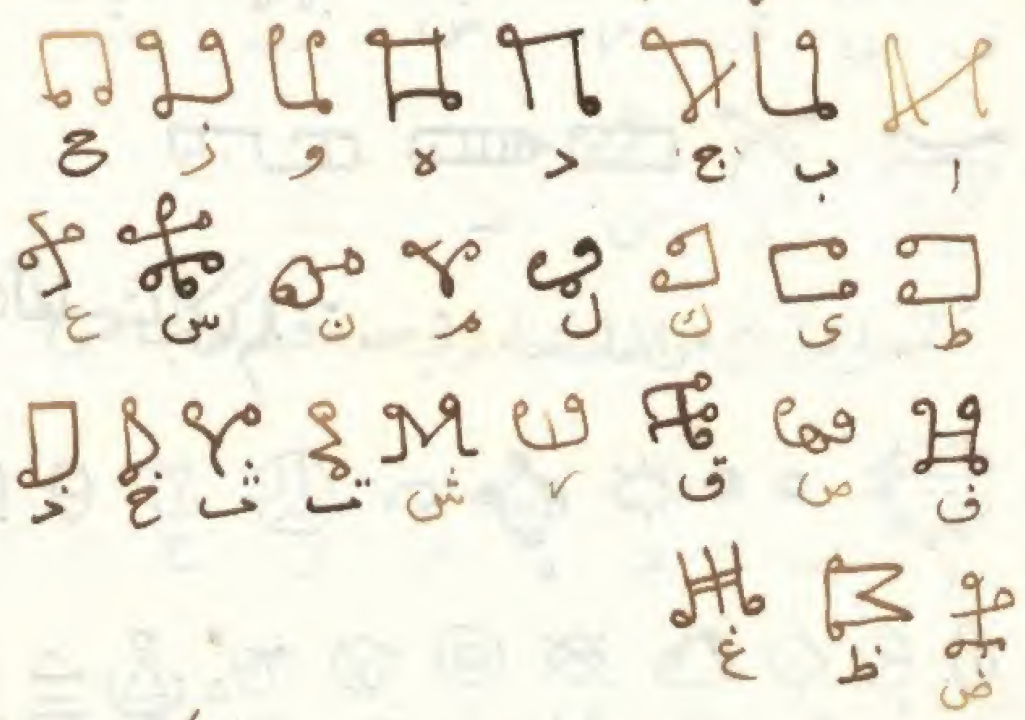 ا ب ج د ه و ز ح
ط ى ك ل م ن س ع
ف ص ق ر ش ت ث خ ذ
ض ظ غ